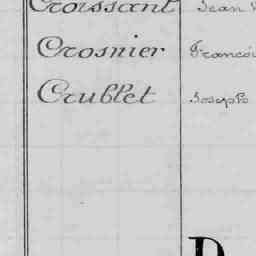 Croissant Jean
Crosnier François
Crublet Joseph
D